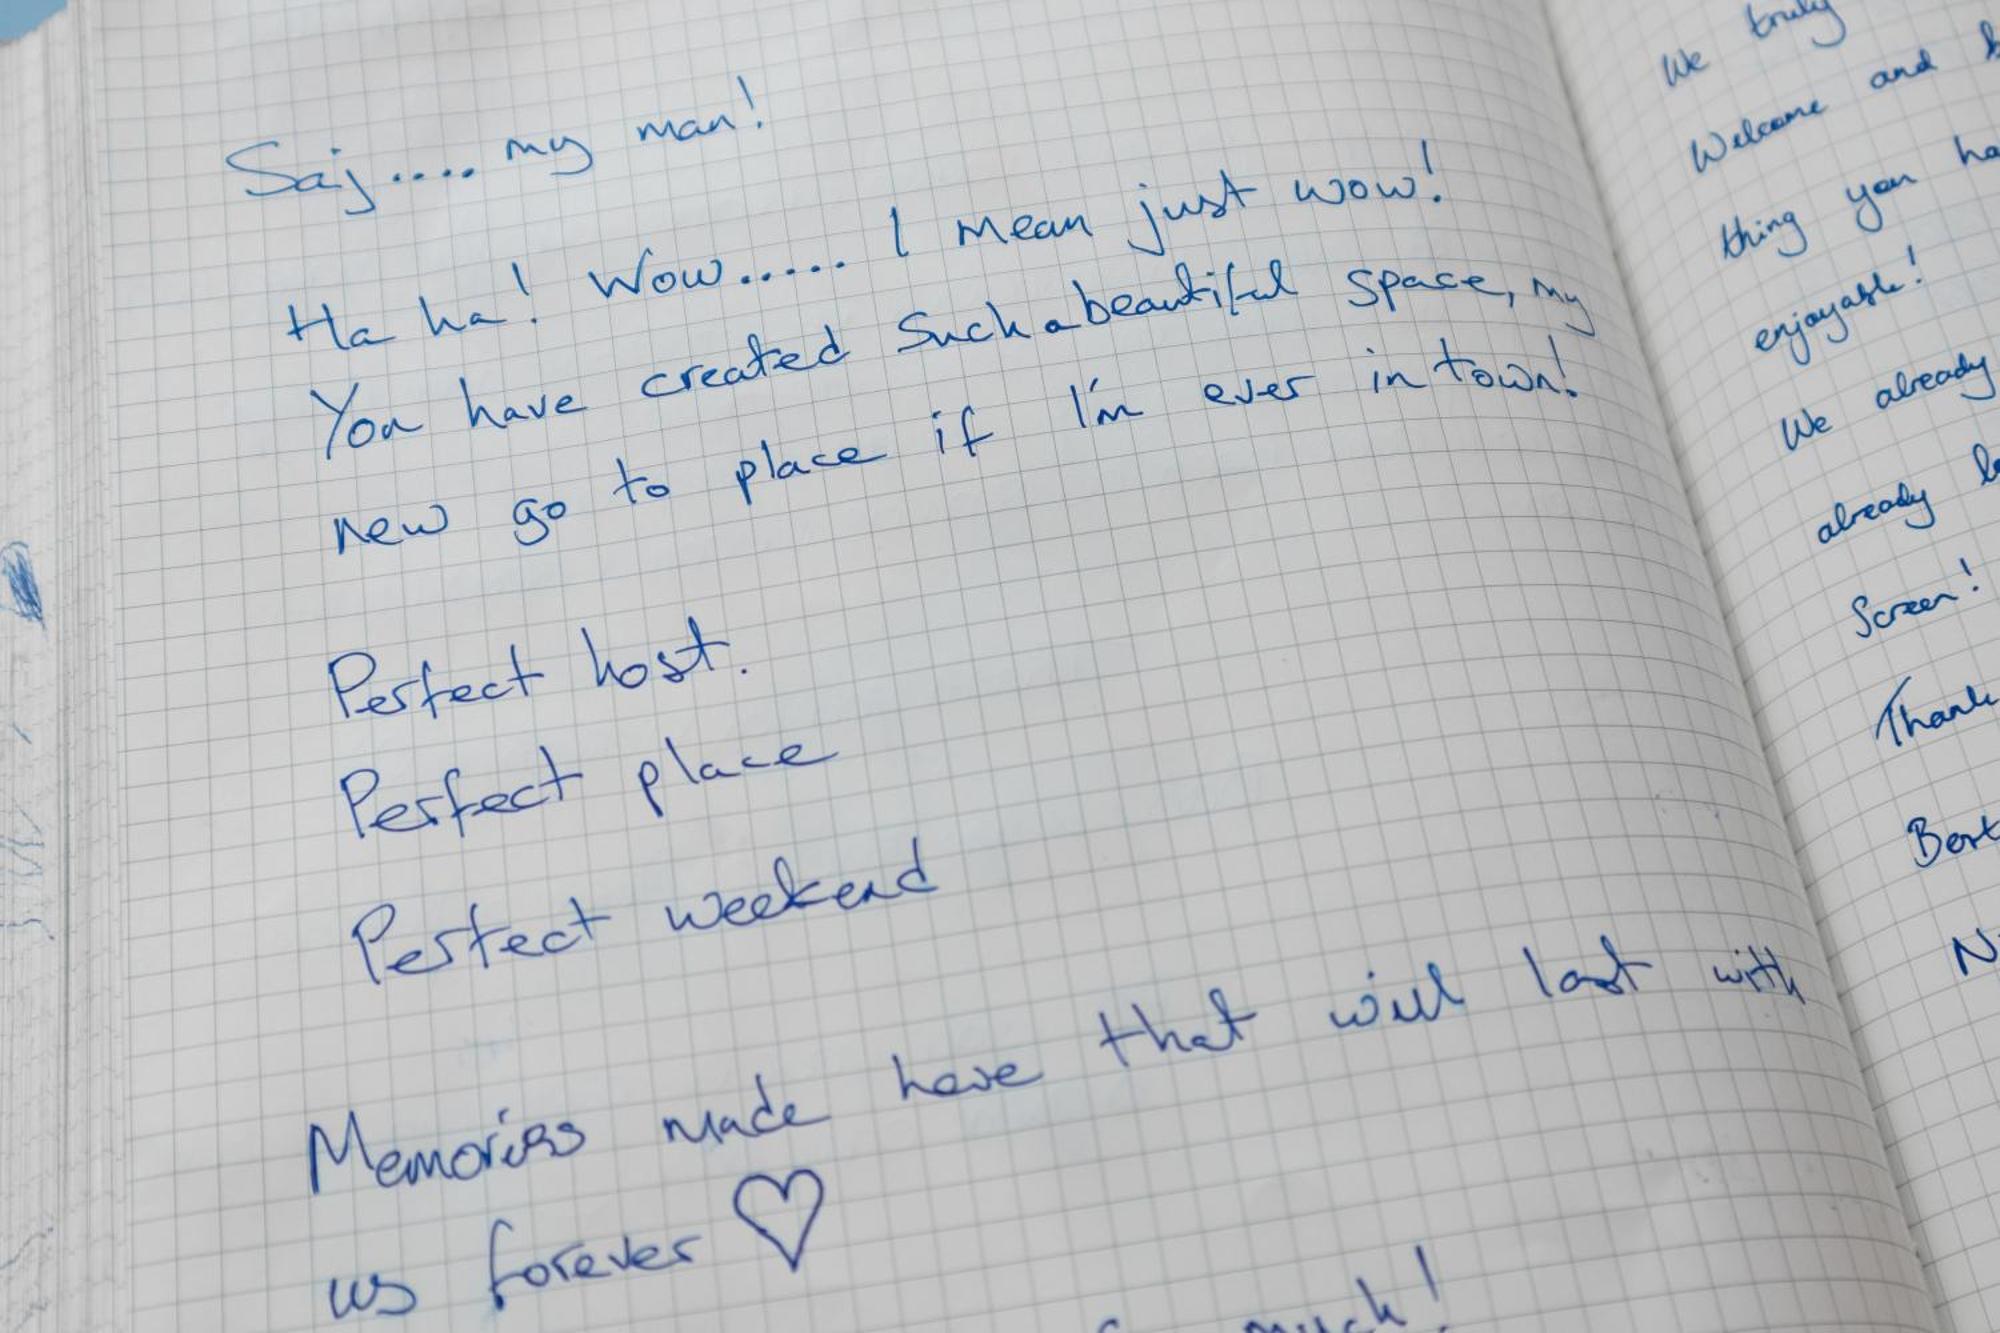 Saj.... my man!
Ha ha! Wow..... I mean just wow!
You have created Such a beautiful space, my
new go to place if I'm ever in town!
Perfect host.
Perfect place
Perfect weekend
Memories made here that will last with
us forever ♡
much!
We truly
Welcome and
thing you
enjoyable!
We already
already
Screen!
Thank